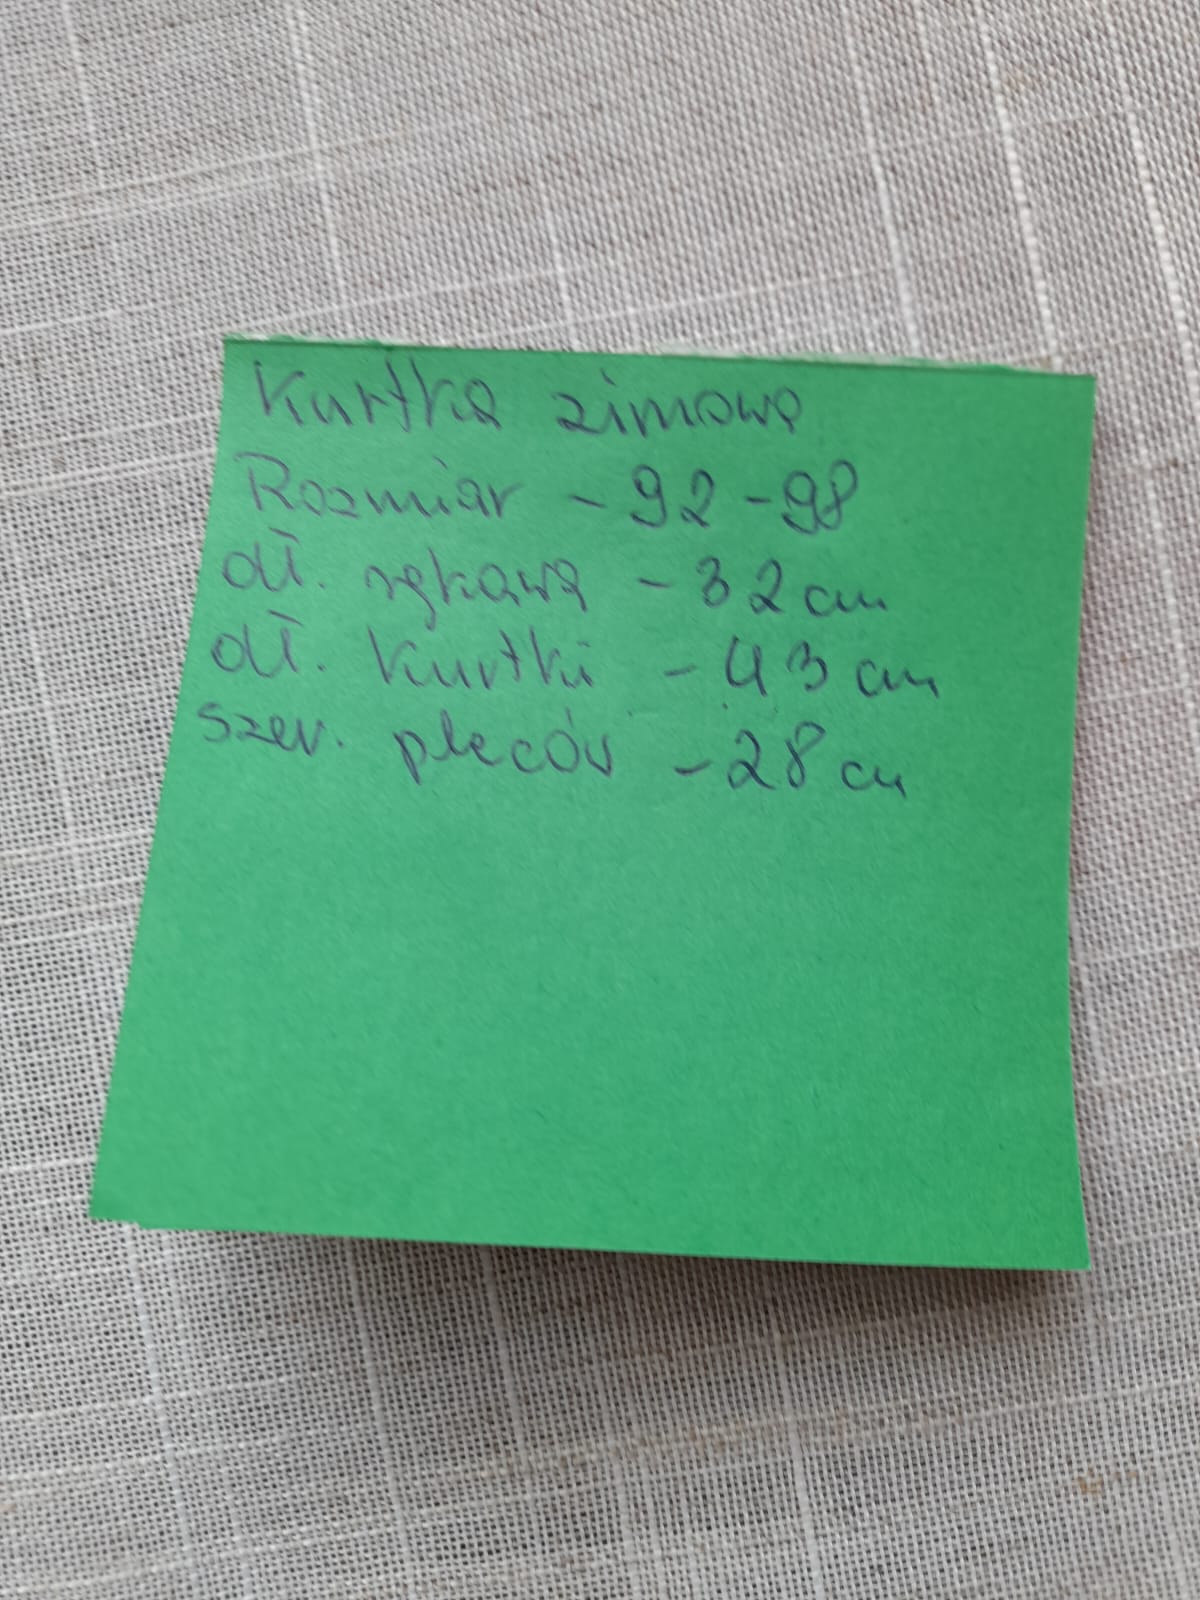 Kurtka zimowa
Rozmiar - 92 - 98
dł. rękawa - 32 cm
dł. kurtki - 43 cm
szer. pleców - 28 cm